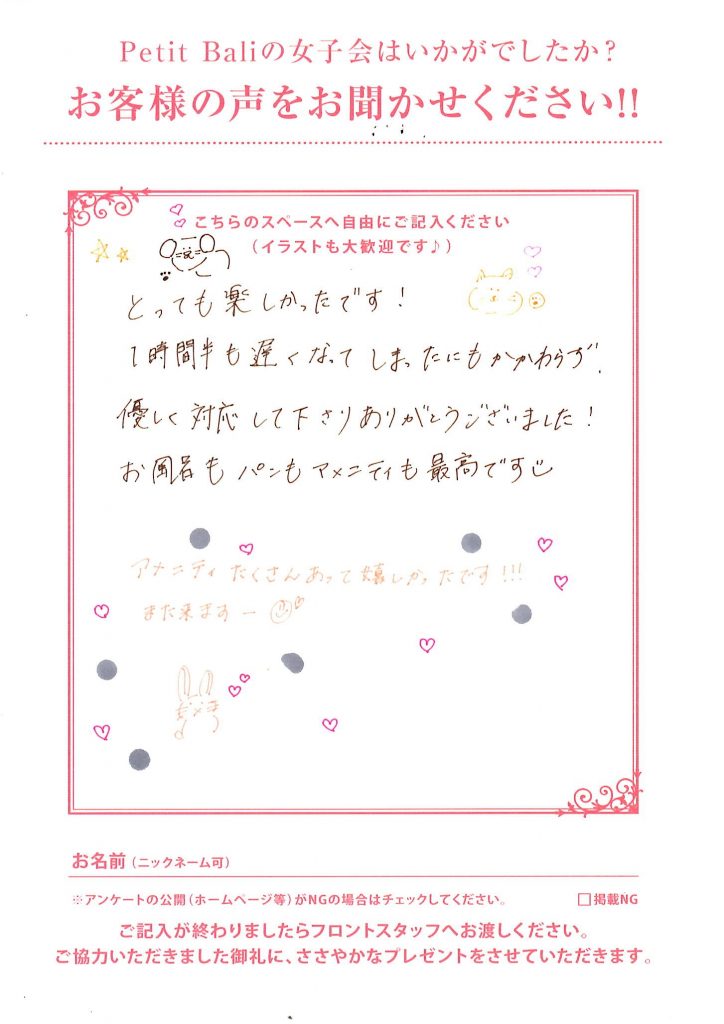 Petit Baliの女子会はいかがでしたか?
お客様の声をお聞かせください!!
こちらのスペースへ自由にご記入ください
(イラストも大歓迎です♪)
とっても楽しかったです!
1時間半も遅くなってしまったにもかかわらず、
優しく対応して下さりありがとうございました!
お風呂もパンもアメニティも最高です
アメニティたくさんあって嬉しかったです!!!
また来ますー
お名前(ニックネーム可)
※アンケートの公開(ホームページ等)がNGの場合はチェックしてください。 □掲載NG
ご記入が終わりましたらフロントスタッフへお渡しください。
ご協力いただきました御礼に、ささやかなプレゼントをさせていただきます。